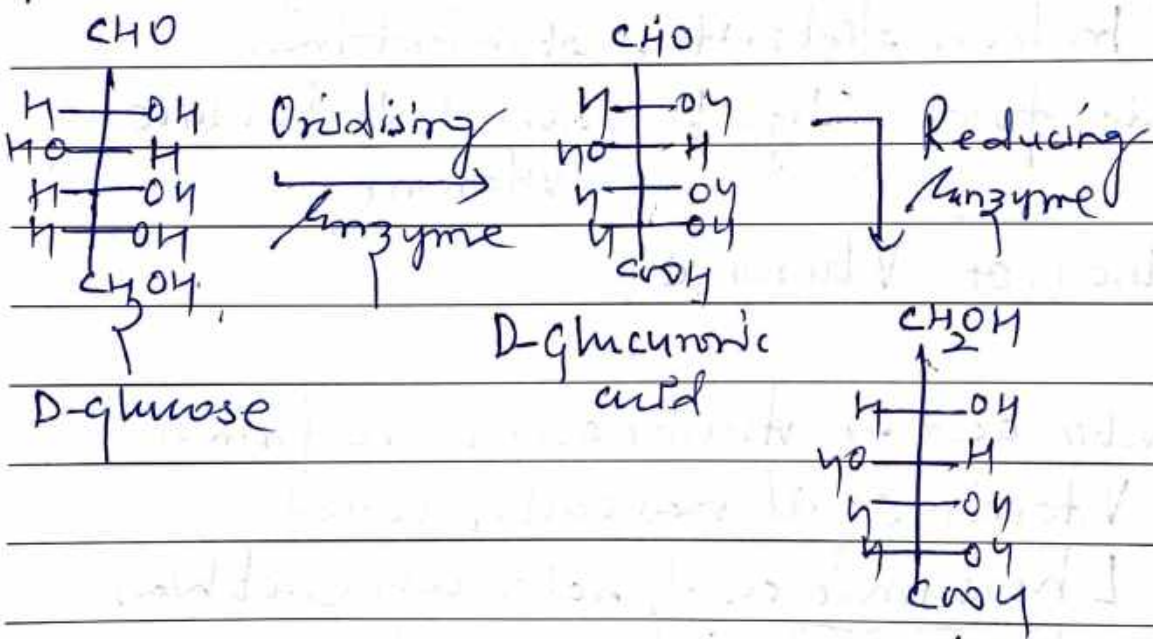 CHO
H OH
HO H
H OH
H OH
CH2OH
D-glucose
Oxidising
Enzyme
CHO
H OH
HO H
H OH
H OH
COOH
D-Glucuronic
acid
Reducing
Enzyme
CH2OH
H OH
HO H
H OH
H OH
COOH